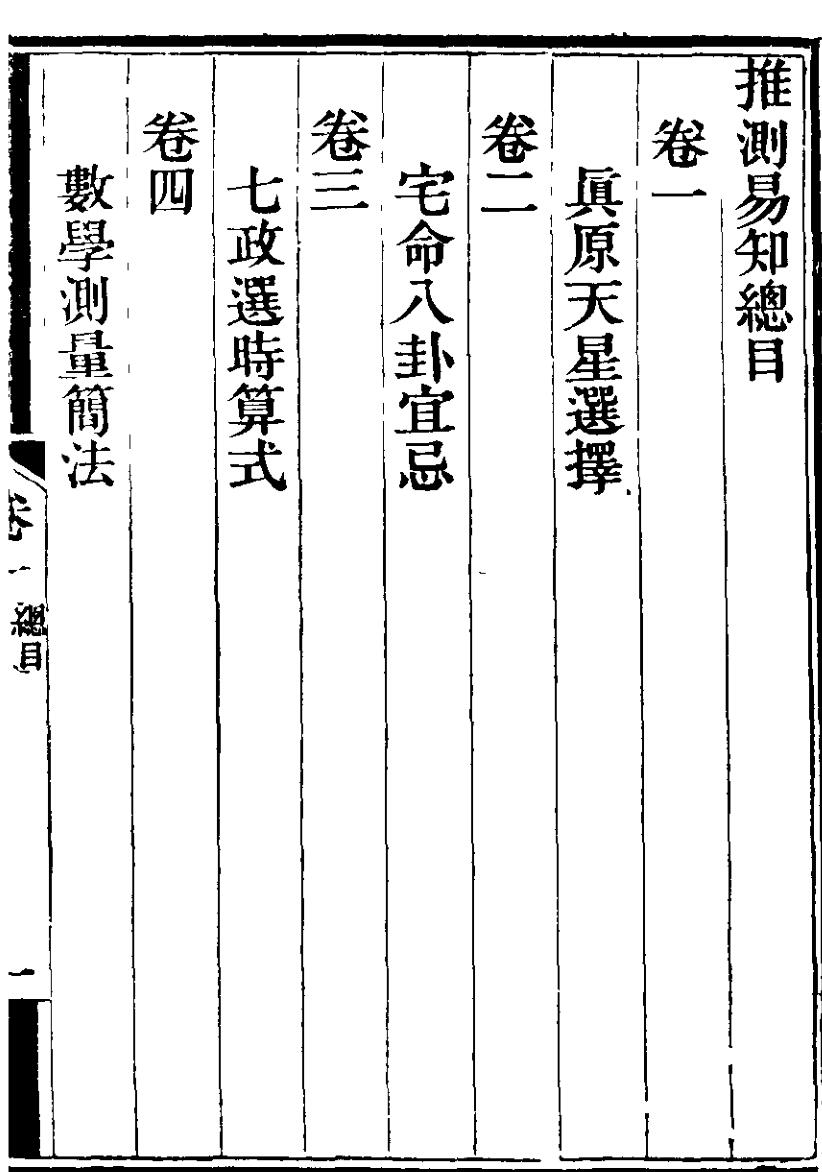 推測易知總目
卷一
眞原天星選擇
卷二
宅命八卦宜忌
卷三
七政選時算式
卷四
數學測量簡法
卷一
總目
一